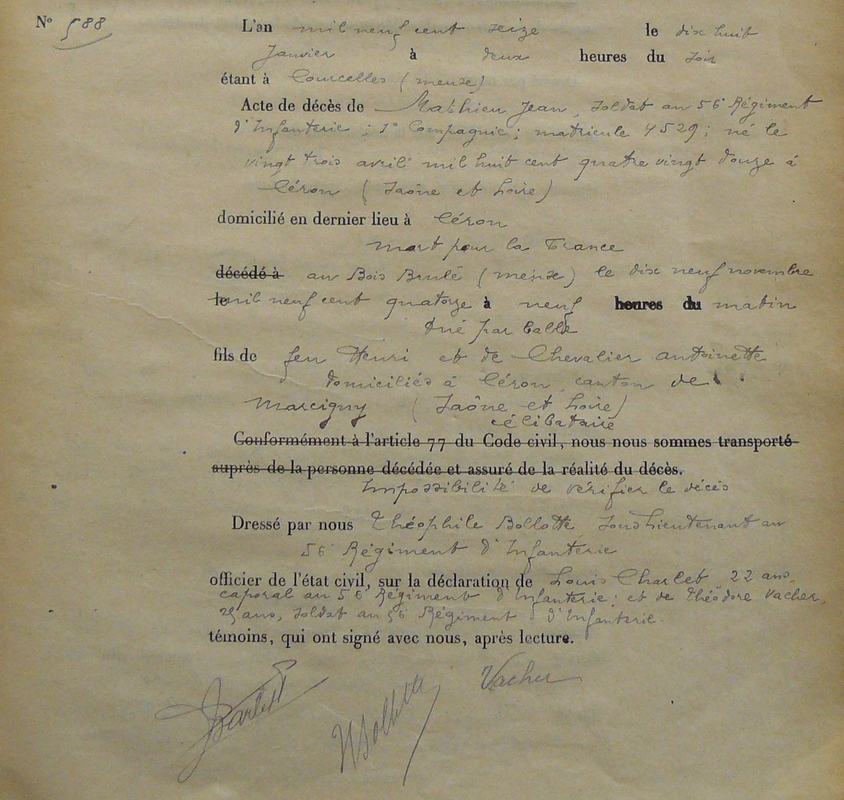 N° 588
L'an mil neuf cent seize le dix huit
Janvier à deux heures du soir
étant à Courcelles (meuse)
Acte de décès de Mathieu Jean, soldat au 56e Régiment
d'Infanterie ; 1e Compagnie ; matricule 4529 ; né le
vingt trois avril mil huit cent quatre vingt douze à
Céron (Saône et Loire)
domicilié en dernier lieu à Céron
mort pour la France
décédé à au Bois Brulé (meuse) le dix neuf novembre
le mil neuf cent quatorze à neuf heures du matin
tué par balle
fils de feu Henri et de Chevalier antoinette
domiciliés à Céron canton de
Marcigny (Saône et Loire)
célibataire
Conformément à l'article 77 du Code civil, nous nous sommes transporté
auprès de la personne décédée et assuré de la réalité du décès.
Impossibilité de vérifier le décès
Dressé par nous Théophile Bollotte Sous Lieutenant au
56e Régiment d'Infanterie
officier de l'état civil, sur la déclaration de Louis Charlet 22 ans,
caporal au 56e Régiment d'Infanterie ; et de Théodore Vacher,
25 ans, soldat au 56e Régiment d'Infanterie.
témoins, qui ont signé avec nous, après lecture.
Vacher